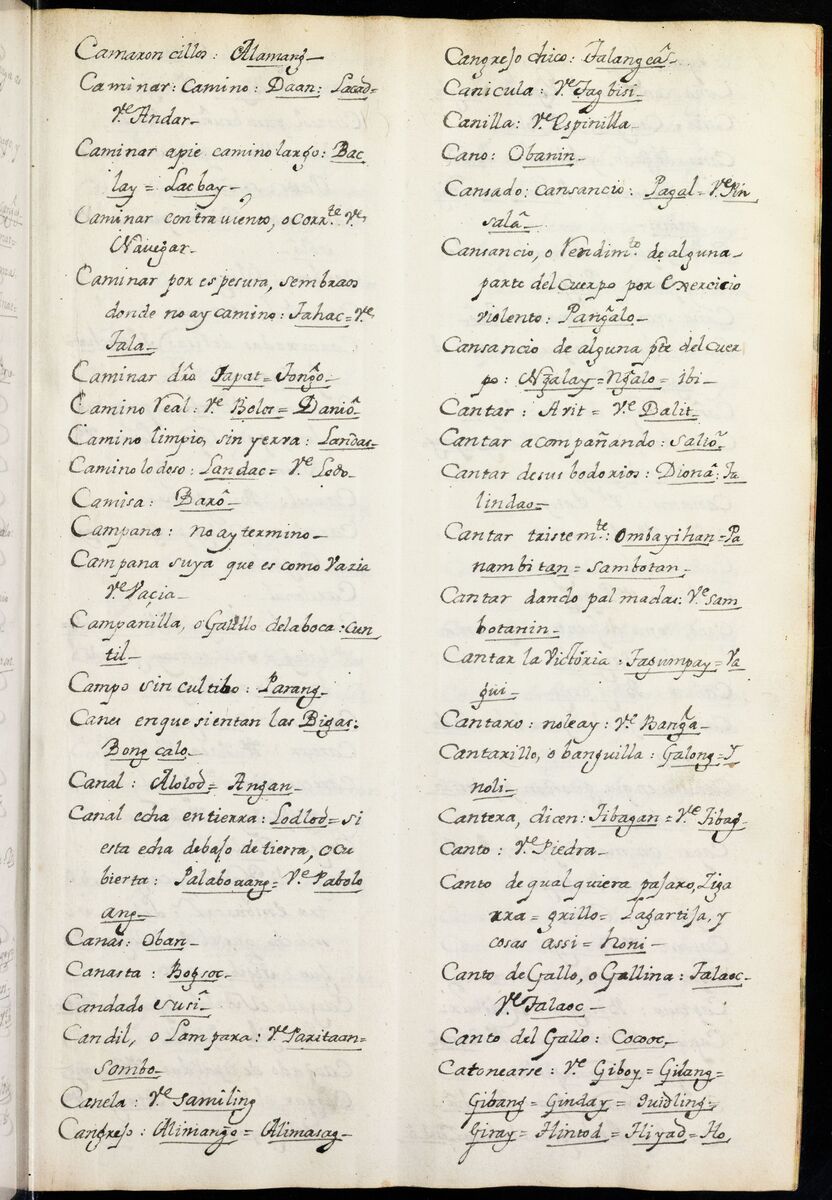 Camaron cillos: Alamang_
Caminar: Camino: Daan: Lacad=
V.e Andar_
Caminar apie camino largo: Bac
lay = Lacbay_
Caminar contra viento, o corr.te V.e
Navegar_
Caminar por espesura, sembraos
donde no ay camino: Tahac=V.e
Tala_
Caminar dr̃o Tapat= Tong̃o_
Camino Real: V.e Bolos= Daniô_
Camino limpio, sin yerra: Landas_
Camino lodoso: Landac= V.e Lodo_
Camisa: Barô_
Campana: no ay termino_
Campana suya que es como Vazia
V.e Vaçia_
Campanilla, o Galillo dela boca: Cun
til_
Campo sin cultibo: Parang_
Canes en que sientan las Bigas:
Bong calo_
Canal: Alolod= Angan_
Canal echa en tierra: Lodlod= si
esta echa debajo de tierra, o cu
bierta: Palabouang= V.e Pabolo
ang_
Canas: Oban_
Canasta: Bogsoc_
Candado Susî_
Candil, o Lampara: V.e Paritaan=
Sombo_
Canela: V.e Samiling
Cangrejo: Alimang̃o = Alimasag_
Cangrejo chico: Talangcâs_
Canicula: V.e Tagbisi_
Canilla: V.e Espinilla_
Cano: Obanin_
Cansado: cansancio: Pagal= V.e Pin
salâ_
Cansancio, o Vendim.to de alguna_
parte del cuerpo por Exercicio
violento: Pang̃alo_
Cansancio de alguna pte del cuer
po: Ng̃alay= Ng̃alo= ibi_
Cantar: Avit= V.e Dalit_
Cantar acompañando: Saliô_
Cantar de sus bodorios: Dionâ: Ta
lindao=
Cantar tristem.te: Ombayihan= Pa
nambitan= Sambotan_
Cantar dando palmadas: V.e Sam
botanin_
Cantar la Victoria: Tagumpay= Va
gui_
Cantaro: no leay: V.e Bang̃a_
Cantarillo, o banguilla: Galong= I
noli_
Cantera, dicen: Tibagan= V.e Tibag_
Canto: V.e Piedra_
Canto de qualquiera pajaro, Ziga
rra= grillo= Lagartija, y
cosas assi= honi_
Canto de Gallo, o Gallina: Talaoc_
V.e Talaoc_
Canto del Gallo: Cocooc_
Catonearse: V.e Giboy= Gilang=
Gibang= Ginday= Guidling=
Giray= Hintod= Hiyad= Ho